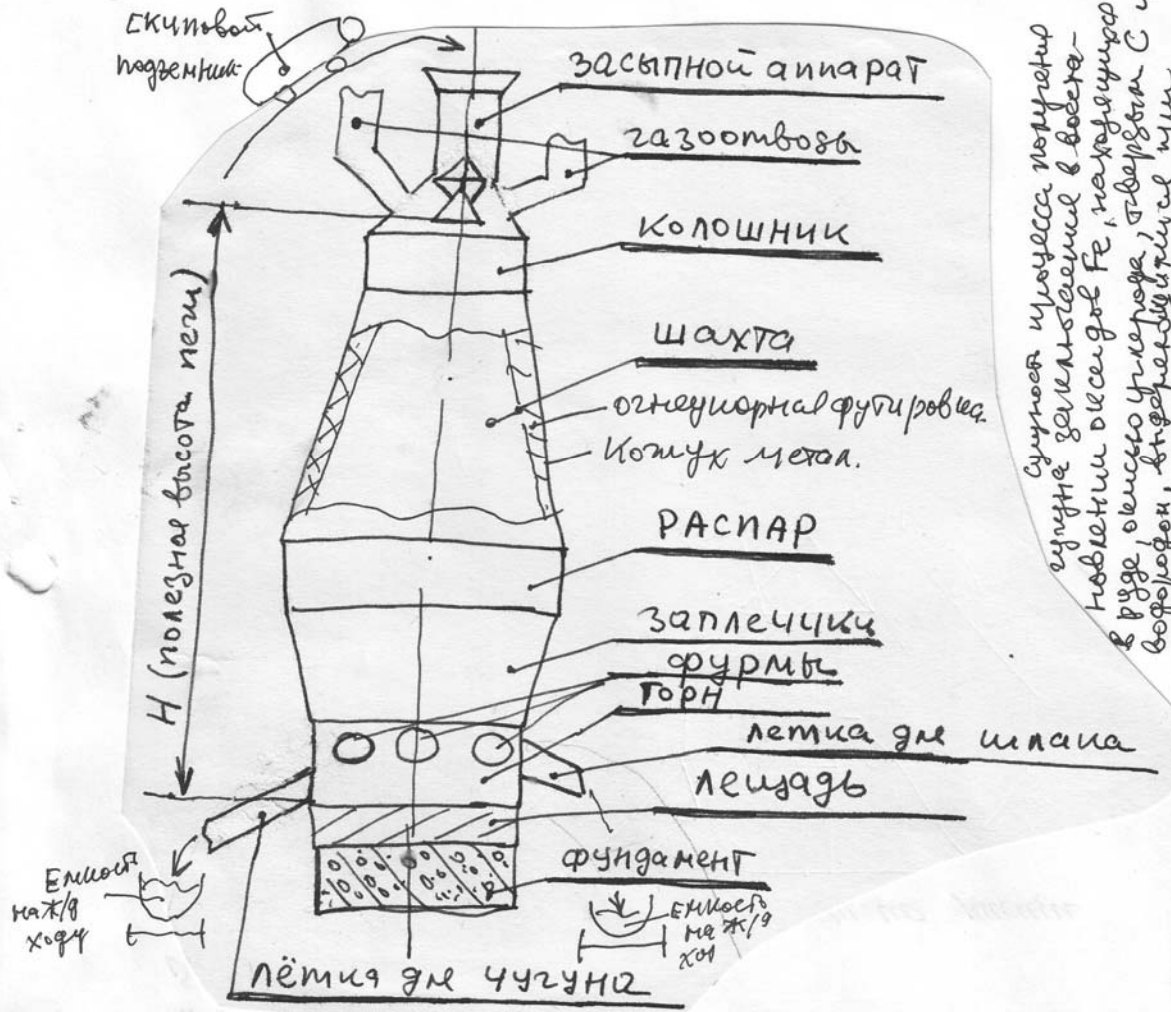 скиповой
подземник
засыпной аппарат
газоотводы
колошник
шахта
огнеупорная футировка.
Кожух метал.
РАСПАР
заплечики
фурмы
горн
летка для шлака
лещадь
фундамент
Емкость
на ж/д
ходу
Емкость
на ж/д
ход
лётка для чугуна
Н (полезная высота печи)
сущность процесса получения
чугуна заключается в восста-
новлении оксидов Fe, находящихся
в руде, окисью углерода, твердым С и
водородом,